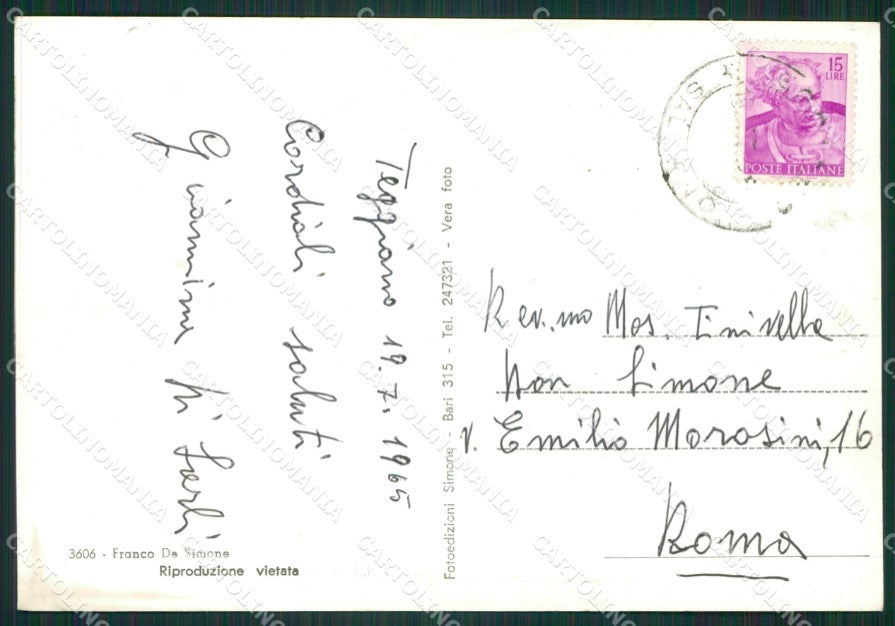 Teggiano 19.7.1965
Cordiali saluti
15
LIRE
POSTE ITALIANE
Rev.mo Mos. Tinivella
Simone
v. Emilio Morosini, 16
Roma
Fotoedizioni Simone - Bari 315 - Tel. 247321 - Vera foto
3606 - Franco De Simone
Riproduzione vietata
CARTOLINOMANIA